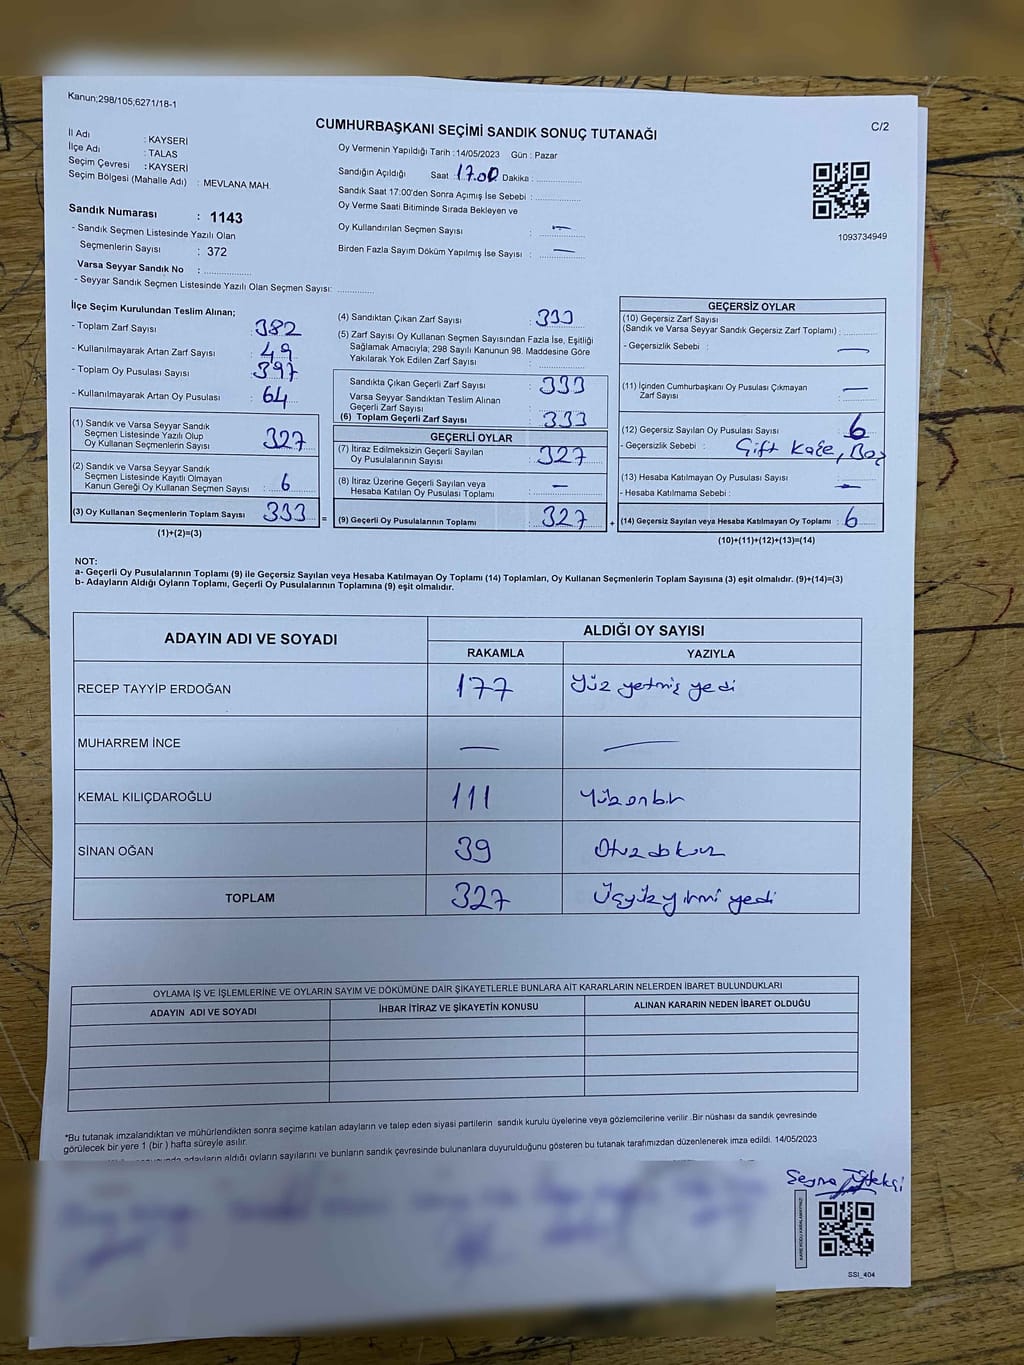 Kanun;298/105,6271/18-1
C/2
CUMHURBAŞKANI SEÇİMİ SANDIK SONUÇ TUTANAĞI
İl Adı : KAYSERİ
İlçe Adı : TALAS
Seçim Çevresi : KAYSERİ
Seçim Bölgesi (Mahalle Adı) : MEVLANA MAH.
Sandık Numarası : 1143
- Sandık Seçmen Listesinde Yazılı Olan
Seçmenlerin Sayısı : 372
Varsa Seyyar Sandık No :
- Seyyar Sandık Seçmen Listesinde Yazılı Olan Seçmen Sayısı:
Oy Vermenin Yapıldığı Tarih :14/05/2023 Gün : Pazar
Sandığın Açıldığı Saat : 17.00 Dakika :
Sandık Saat 17:00'den Sonra Açımış İse Sebebi :
Oy Verme Saati Bitiminde Sırada Bekleyen ve
Oy Kullandırılan Seçmen Sayısı : —
Birden Fazla Sayım Döküm Yapılmış İse Sayısı : —
1093734949
İlçe Seçim Kurulundan Teslim Alınan;
- Toplam Zarf Sayısı : 382
- Kullanılmayarak Artan Zarf Sayısı : 49
- Toplam Oy Pusulası Sayısı : 397
- Kullanılmayarak Artan Oy Pusulası : 64
(1) Sandık ve Varsa Seyyar Sandık
Seçmen Listesinde Yazılı Olup
Oy Kullanan Seçmenlerin Sayısı : 327
(2) Sandık ve Varsa Seyyar Sandık
Seçmen Listesinde Kayıtlı Olmayan
Kanun Gereği Oy Kullanan Seçmen Sayısı : 6
(3) Oy Kullanan Seçmenlerin Toplam Sayısı : 333 =
(1)+(2)=(3)
(4) Sandıktan Çıkan Zarf Sayısı : 333
(5) Zarf Sayısı Oy Kullanan Seçmen Sayısından Fazla İse, Eşitliği
Sağlamak Amacıyla; 298 Sayılı Kanunun 98. Maddesine Göre
Yakılarak Yok Edilen Zarf Sayısı :
Sandıkta Çıkan Geçerli Zarf Sayısı : 333
Varsa Seyyar Sandıktan Teslim Alınan
Geçerli Zarf Sayısı :
(6) Toplam Geçerli Zarf Sayısı : 333
GEÇERLİ OYLAR
(7) İtiraz Edilmeksizin Geçerli Sayılan
Oy Pusulalarının Sayısı : 327
(8) İtiraz Üzerine Geçerli Sayılan veya
Hesaba Katılan Oy Pusulası Toplamı : —
(9) Geçerli Oy Pusulalarının Toplamı : 327 +
GEÇERSİZ OYLAR
(10) Geçersiz Zarf Sayısı
(Sandık ve Varsa Seyyar Sandık Geçersiz Zarf Toplamı) :
- Geçersizlik Sebebi : —
(11) İçinden Cumhurbaşkanı Oy Pusulası Çıkmayan
Zarf Sayısı : —
(12) Geçersiz Sayılan Oy Pusulası Sayısı : 6
- Geçersizlik Sebebi : Çift Kaşe, Boş
(13) Hesaba Katılmayan Oy Pusulası Sayısı :
- Hesaba Katılmama Sebebi : —
(14) Geçersiz Sayılan veya Hesaba Katılmayan Oy Toplamı : 6
(10)+(11)+(12)+(13)=(14)
NOT:
a- Geçerli Oy Pusulalarının Toplamı (9) ile Geçersiz Sayılan veya Hesaba Katılmayan Oy Toplamı (14) Toplamları, Oy Kullanan Seçmenlerin Toplam Sayısına (3) eşit olmalıdır. (9)+(14)=(3)
b- Adayların Aldığı Oyların Toplamı, Geçerli Oy Pusulalarının Toplamına (9) eşit olmalıdır.
ADAYIN ADI VE SOYADI ALDIĞI OY SAYISI
RAKAMLA YAZIYLA
RECEP TAYYİP ERDOĞAN 177 Yüz yetmiş yedi
MUHARREM İNCE — —
KEMAL KILIÇDAROĞLU 111 Yüzonbir
SİNAN OĞAN 39 Otuzdokuz
TOPLAM 327 Üçyüzyirmi yedi
OYLAMA İŞ VE İŞLEMLERİNE VE OYLARIN SAYIM VE DÖKÜMÜNE DAİR ŞİKAYETLERLE BUNLARA AİT KARARLARIN NELERDEN İBARET BULUNDUKLARI
ADAYIN ADI VE SOYADI İHBAR İTİRAZ VE ŞİKAYETİN KONUSU ALINAN KARARIN NEDEN İBARET OLDUĞU
*Bu tutanak imzalandıktan ve mühürlendikten sonra seçime katılan adayların ve talep eden siyasi partilerin sandık kurulu üyelerine veya gözlemcilerine verilir .Bir nüshası da sandık çevresinde
görülecek bir yere 1 (bir ) hafta süreyle asılır.
adayların aldığı oyların sayılarını ve bunların sandık çevresinde bulunanlara duyurulduğunu gösteren bu tutanak tarafımızdan düzenlenerek imza edildi. 14/05/2023
SSI_404